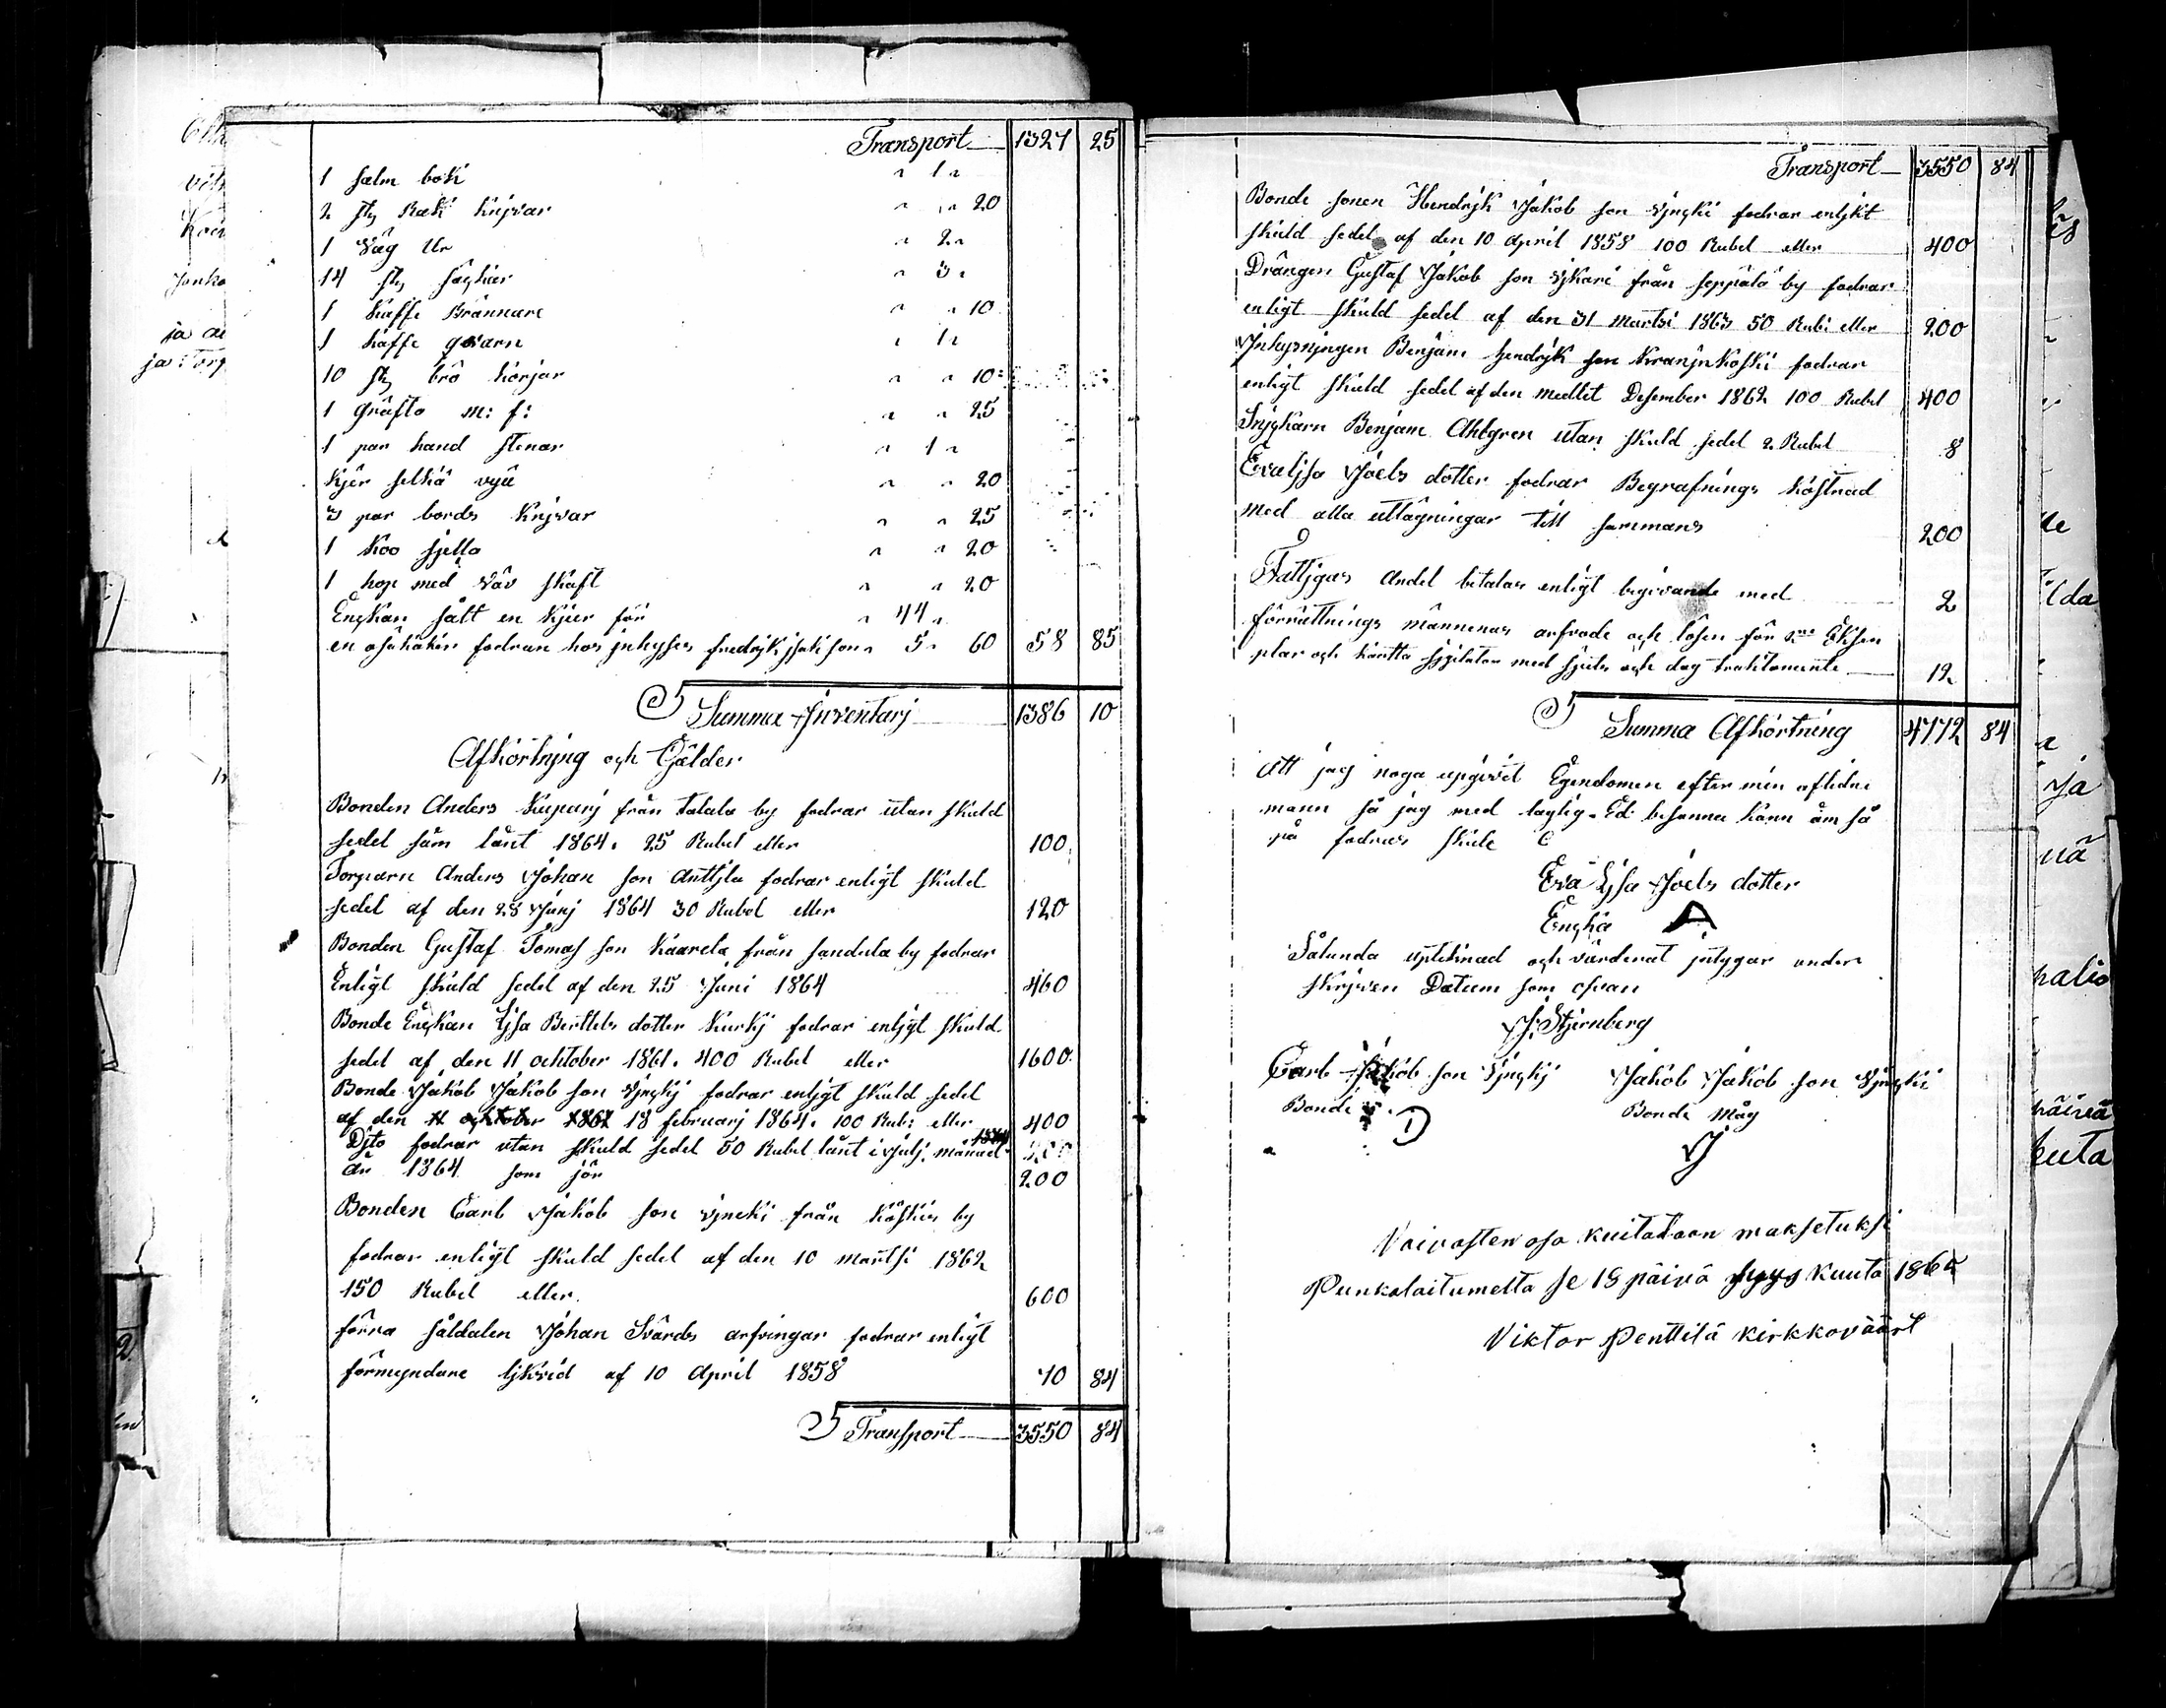 Transport 1327 25
1 salm bok " 1 "
2 stz Rak knjvar " " 20
1 väg Ur " 2 "
14 stz säckier " 3 "
1 kaffe Brännare " " 10
1 kaffe qvarn " 1 "
10 stz brö korjar " " 10
1 gräfto m: f: " " 25
1 par hand stenar " 1 "
kjär selkä vyä " " 20
3 par bords knjvar " " 25
1 koo sjella " " 20
1 hop med väv skaft " " 20
Enckan sålt en kjier för " 44 "
en osäkäker fodran hos jnhyses fredrjk jsak son " 5 " 60 58 85
Summa Jnventarj 1386 10
Afkörtnjng och Gjälder
Bonden Anders Kuparj från talala by fodrar utan skuld
sedel såm lånt 1864. 25 Rubel eller 100
Torparn Anders Johan son Anttjla fodrar enligt skuld
sedel af den 28 Junj 1864 30 Rubel eller 120
Bonden Gustaf Tomas son Kaarela från sandula by fodrar
Enligt skuld sedel af den 25 Juni 1864 460
Bonde Enckan Ljsa Berttels dotter Kurkj fodrar enljgt skuld
sedel af den 11 ochtober 1861. 400 Rubel eller 1600
Bonde Jakob Jakob son Vjnckj fodrar enljgt skuld sedel
af den 11 ochtober 1861 18 februarj 1864. 100 Rub: eller 400
Djto fodrar utan skuld sedel 50 Rubel lånt i Julj månad 1864 200
år 1864 som jör 200
Bonden Carl Jakob son vjncki från köskis by
fodrar enligt skuld sedel af den 10 martsi 1862
150 Rubel eller 600
förra såldalen Johan Svärds arfvingar fodrar enligt
förmyndare ljkvid af 10 April 1858 70 84
Transport 3550 84
Transport 3550 84
Bonde sonen Hendrjk Jakob son Vjncki fodrar enljkt
skuld sedel af den 10 April 1858 100 Rubel eller 400
Drängen Gustaf Jakob son Vjkari från seppälä by fodrar
enligt skuld sedel af den 31 martsi 1863 50 Rub: eller 200
Jnhysningen Benjam hendrjk son kranjnkoski fodrar
enligt skuld sedel af den medlet Desember 1862 100 Rubel 400
Snjckarn Benjam Ahlgren utan skuld sedel 2 Rubel 8
Evaljsa Joels dotter fodrar Begrafnings kostnad
med alla utlagningar till sammans 200
Fattjgas Andel betalas enligt begivande med 2
förrättnings männenas arfvode och lösen för 2ne Eksem
plar och kantta med skjuts och dag traktamente 12
Summa Afkortning 4772 84
Att jag noga upgivit Egendomen efter min aflidne
mann så jag med laglig Ed besanna kann åm så
på fodras skule
Eva Ljsa Joels dotter
Enckä A
Sålunda upteknad och värderat jntygar under
skrjven Datum som ofvan
J: Stjernberg
Carl Jakob son Vjnckj Jakob Jakob son Vjncki
Bonde Bonde Måg
D J
Vaivasten osa kuitataan maksetuksi
Punkalaitumella se 18 päivä syys kuuta 1865
Viktor Penttilä kirkkoväärt